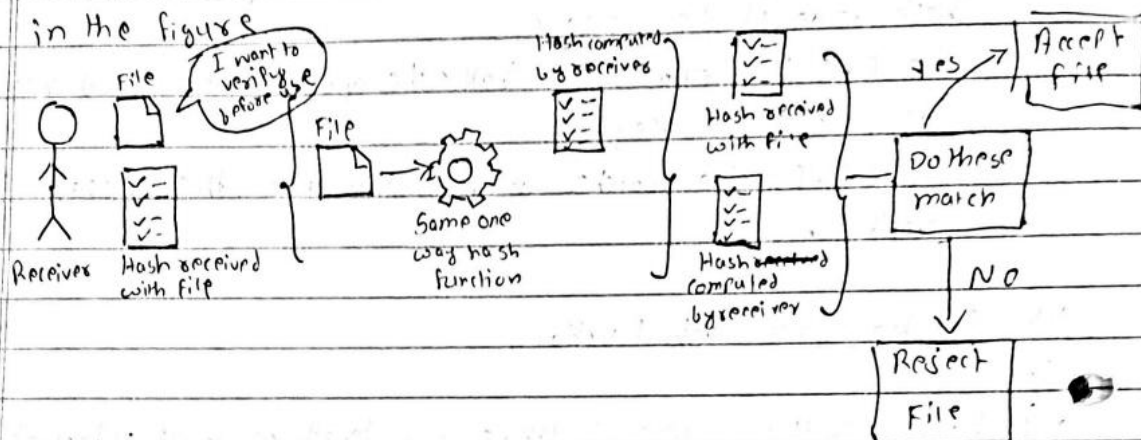 in the figure
File
I want to
verify
before use
Receiver
Hash received
with file
File
Same one
way hash
function
Hash computed
by receiver
Hash received
with file
Hash received
computed
by receiver
Do these
match
yes
Accept
file
NO
Reject
File